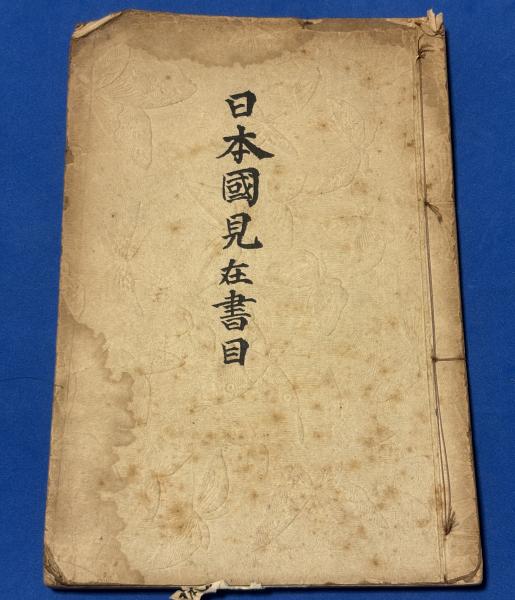 日本國見在書目